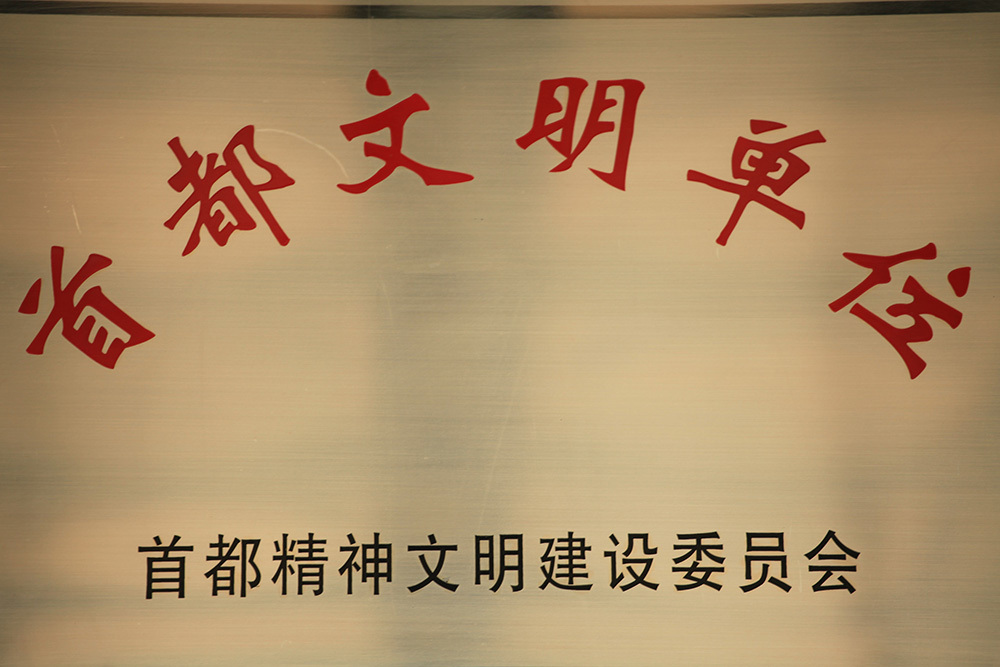 首都文明单位
首都精神文明建设委员会